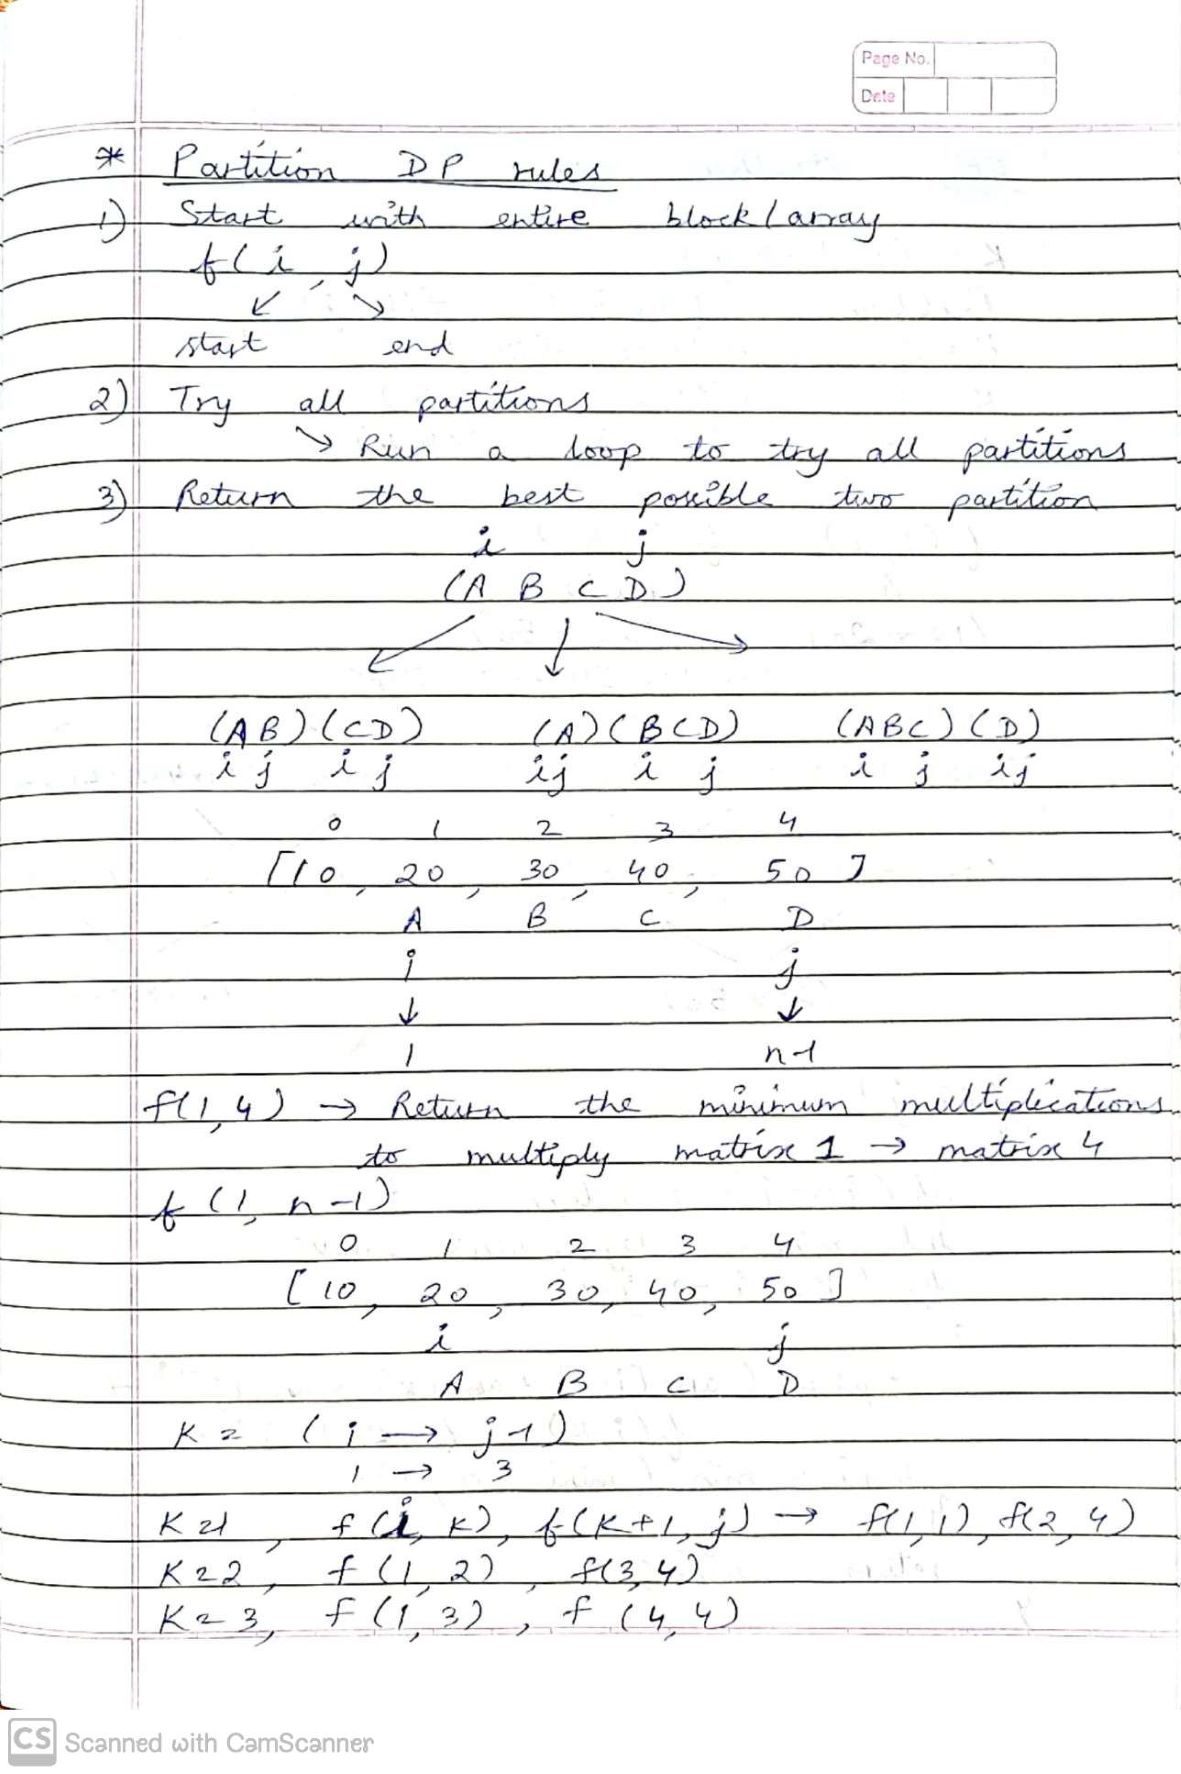 Page No.
Date
* Partition DP rules
1) Start with entire block/array
f(i, j)
↙ ↘
start end
2) Try all partitions
↘ Run a loop to try all partitions
3) Return the best possible two partition
i j
(A B C D)
(AB)(CD) (A)(BCD) (ABC)(D)
i j i j ij i j i j ij
0 1 2 3 4
[10, 20, 30, 40, 50]
A B C D
i j
↓ ↓
1 n-1
f(1,4) → Return the minimum multiplications
to multiply matrix 1 → matrix 4
f(1, n-1)
0 1 2 3 4
[10, 20, 30, 40, 50]
i j
A B C D
K = (i → j-1)
1 → 3
K=1, f(i, K), f(K+1, j) → f(1,1), f(2,4)
K=2, f(1,2), f(3,4)
K=3, f(1,3), f(4,4)
CS Scanned with CamScanner